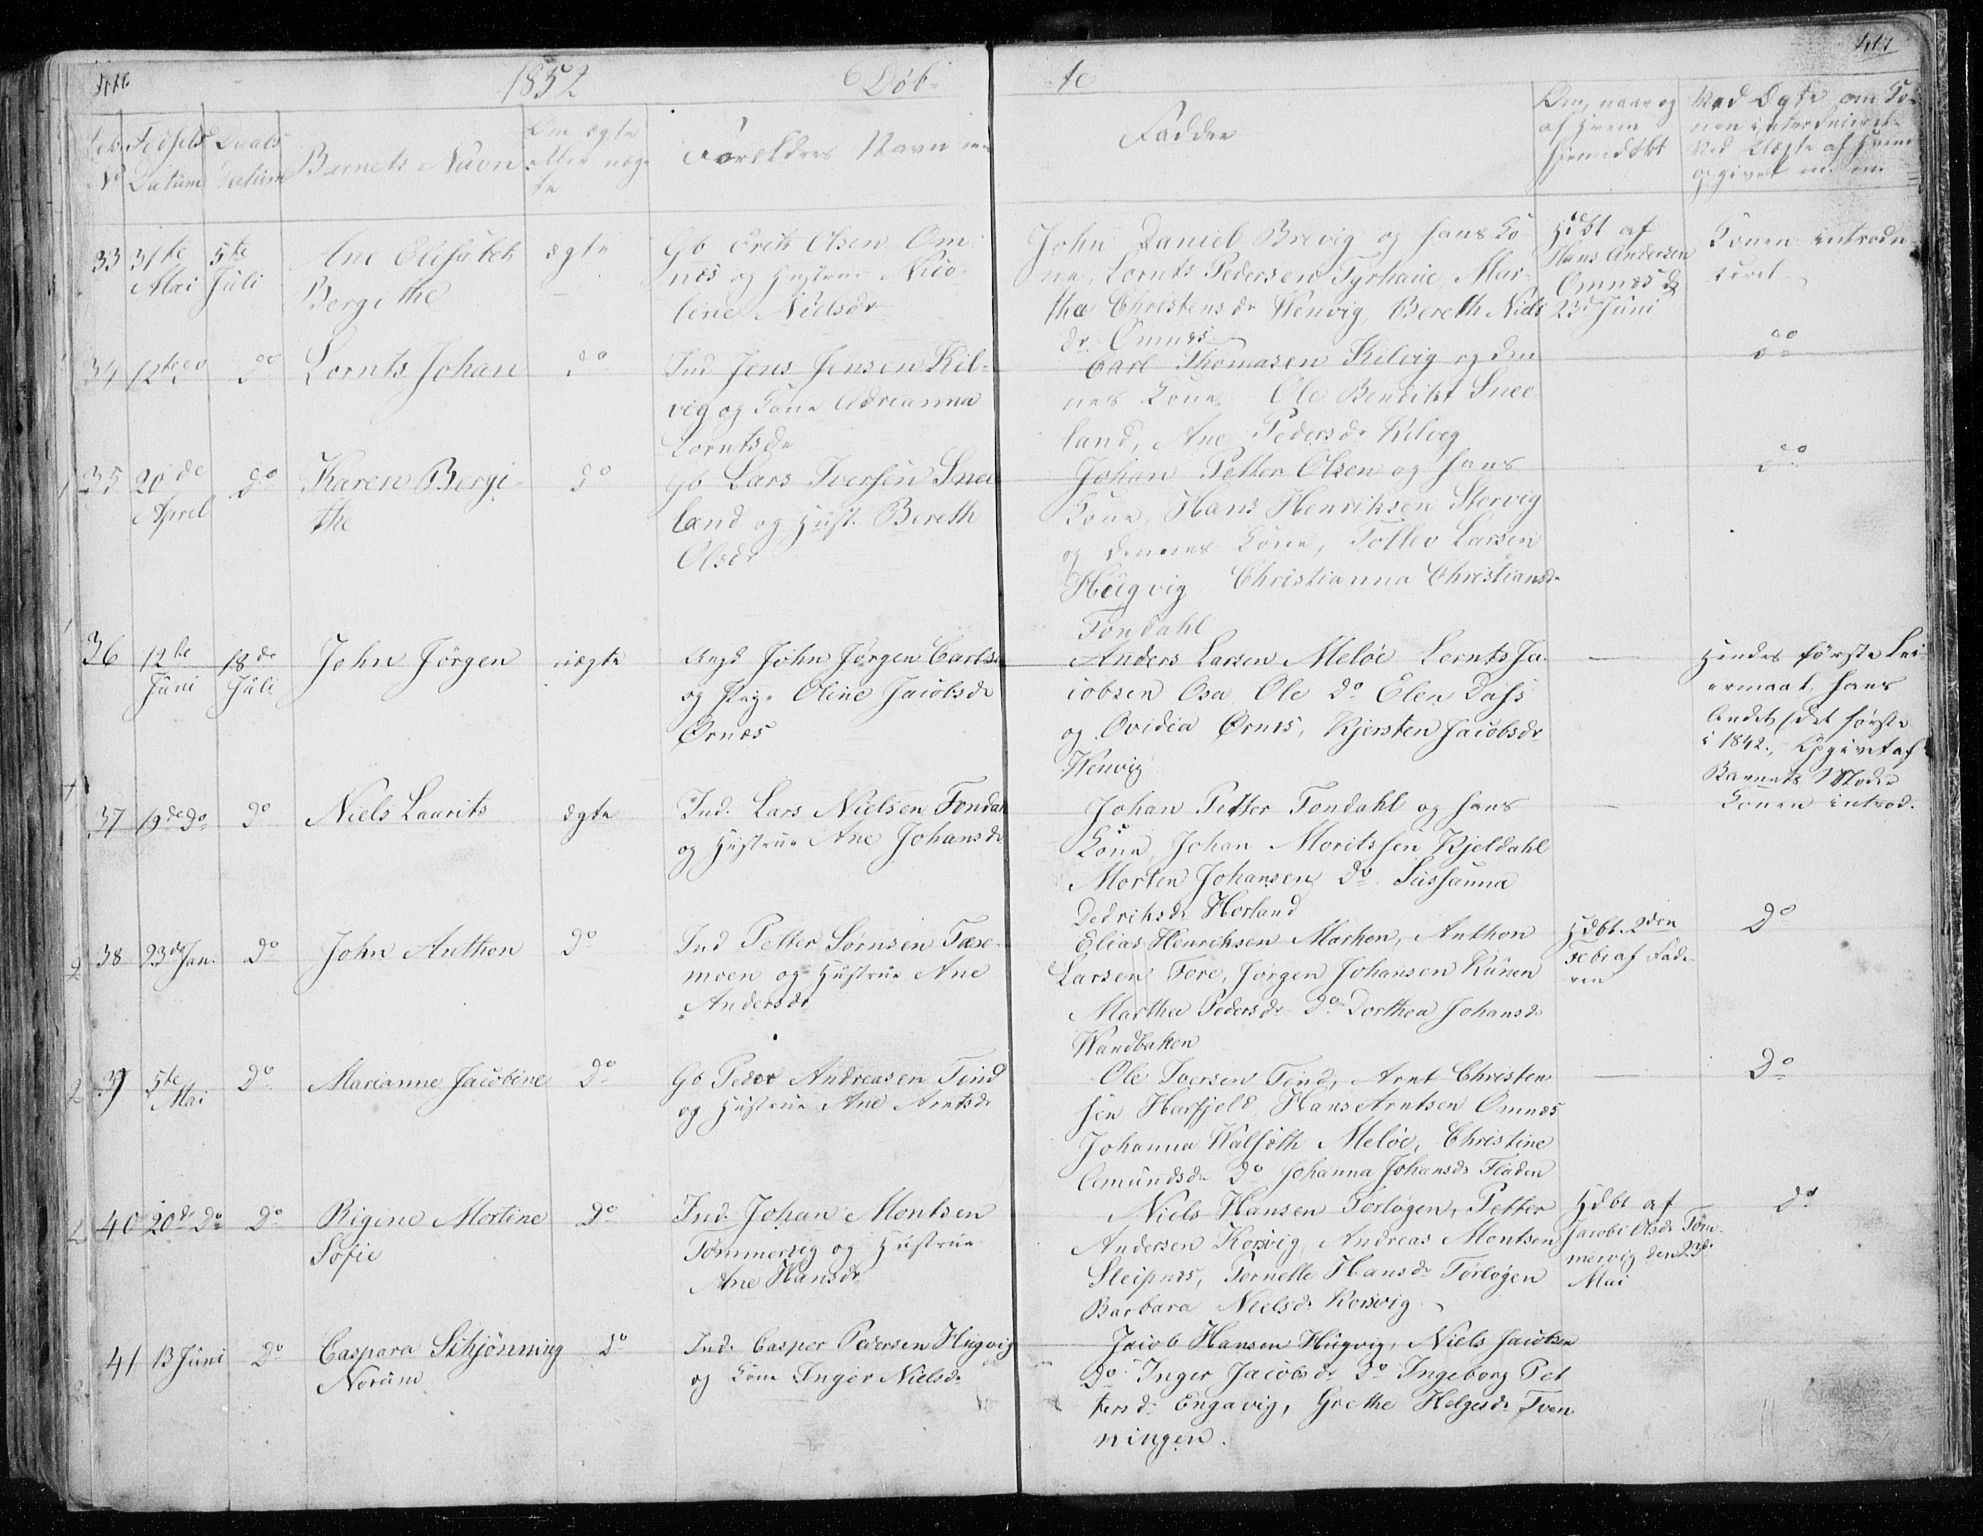 416 1852 Døb- te 417
Løb. No
Fødsels Datum
Daabs Datum
Barnets Navn
Om ægte eller uægte
Forældres Navn
Faddre
Om, naar og af hvem hjemmedøbt
Ved Ægte om Konen introduceret.
33 31te Mai 5te Juli Ane Elisabeth Bergithe ægte
Gb Erik Olsen Omnes og Hustrue Nicoline Nielsdr
John Daniel Brevig og hans Kone, Lornts Pedersen Tyrhaue, Martha Christensdr Wenvig, Bereth Nielsdr Omnes
Hdbt af Hans Andersen Omnæs d 23d Juni
Konen introduceret
34 12te do do Lornts Johan do
Ind Jens Jensen Kilvig og Kone Adrianna Lorntsdr
Carl Thomasen Kilvig og dennes Kone, Ole Bendikt Sneeland, Ane Pedersdr Kilvig
do
35 20de April do Karen Bergithe do
Gb Lars Iversen Sneeland og Hust. Bereth Olsdr
Johan Petter Olsen og hans Kone, Hans Henriksen Storvig og dennes Kone, Tollev Larsen Hugvig Christianna Christiansdr Fondahl
do
36 12te Juni 18de Juli John Jörgen uægte
Ungk John Jörgen Carls. og Pige Oline Jacobsdr Ørnæs
Anders Larsen Meløe Lornts Jacobsen Osa Ole do Elen Dass og Ovidia Ørnes, Kjersten Jacobsdr Wenvig
Hendes første Leiermaal, hans Andet (det første i 1842., Opgivet af Barnets Moder
37 19de do do Niels Laurits ægte
Ind. Lars Nielsen Fondal og Hustrue Ane Johansdr
Johan Petter Fondahl og hans Kone, Johan Moritssen Kjeldahl Morten Johansen do. Sussanna Dedriksdr Horland
Konen introd.
38 23de Jan. do John Anthon do
Ind Petter Sørnsen Tæsemoen og Hustrue Ane Andersdr
Elias Henriksen Marken, Anthon Larsen Fore, Jørgen Johansen Kunen Martha Pedersdr do Dorthea Johansdr Wandbakken
Hdbt 2den Febr af Faderen
do
39 5te Mai do Marianne Jacobine do
Gb Peder Andreasen Tind og Hustrue Ane Arntsdr
Ole Iversen Tind, Arnt Christensen Harfjeld, Hans Arntsen Omnæs Johanna Walsøth Meløe, Christine Amundsdr do Johanna Johansdr Fladen
do
40 20de do do Rigine Mortine Sofie do
Ind. Johan Montsen Tømmervig og Hustrue Ane Hansdr
Niels Hansen Forløgen, Petter Andersen Korsvig, Andreas Montsen Sleipnes, Pernelle Hansdr Forløgen Barbara Nielsdr Korsvig.
Hdbt af Jacobi Olsdr Tømmervig den 23de Mai
do
41 13 Juni do Caspara Schjønning Norum do
Ind. Casper Pedersen Hugvig og Kone Inger Nielsdr
Jacob Hansen Hugvig, Niels Jacobsen do Inger Jacobsdr do Ingeborg Pettersdr Engavig, Grethe Helgesdr Tvenningen.